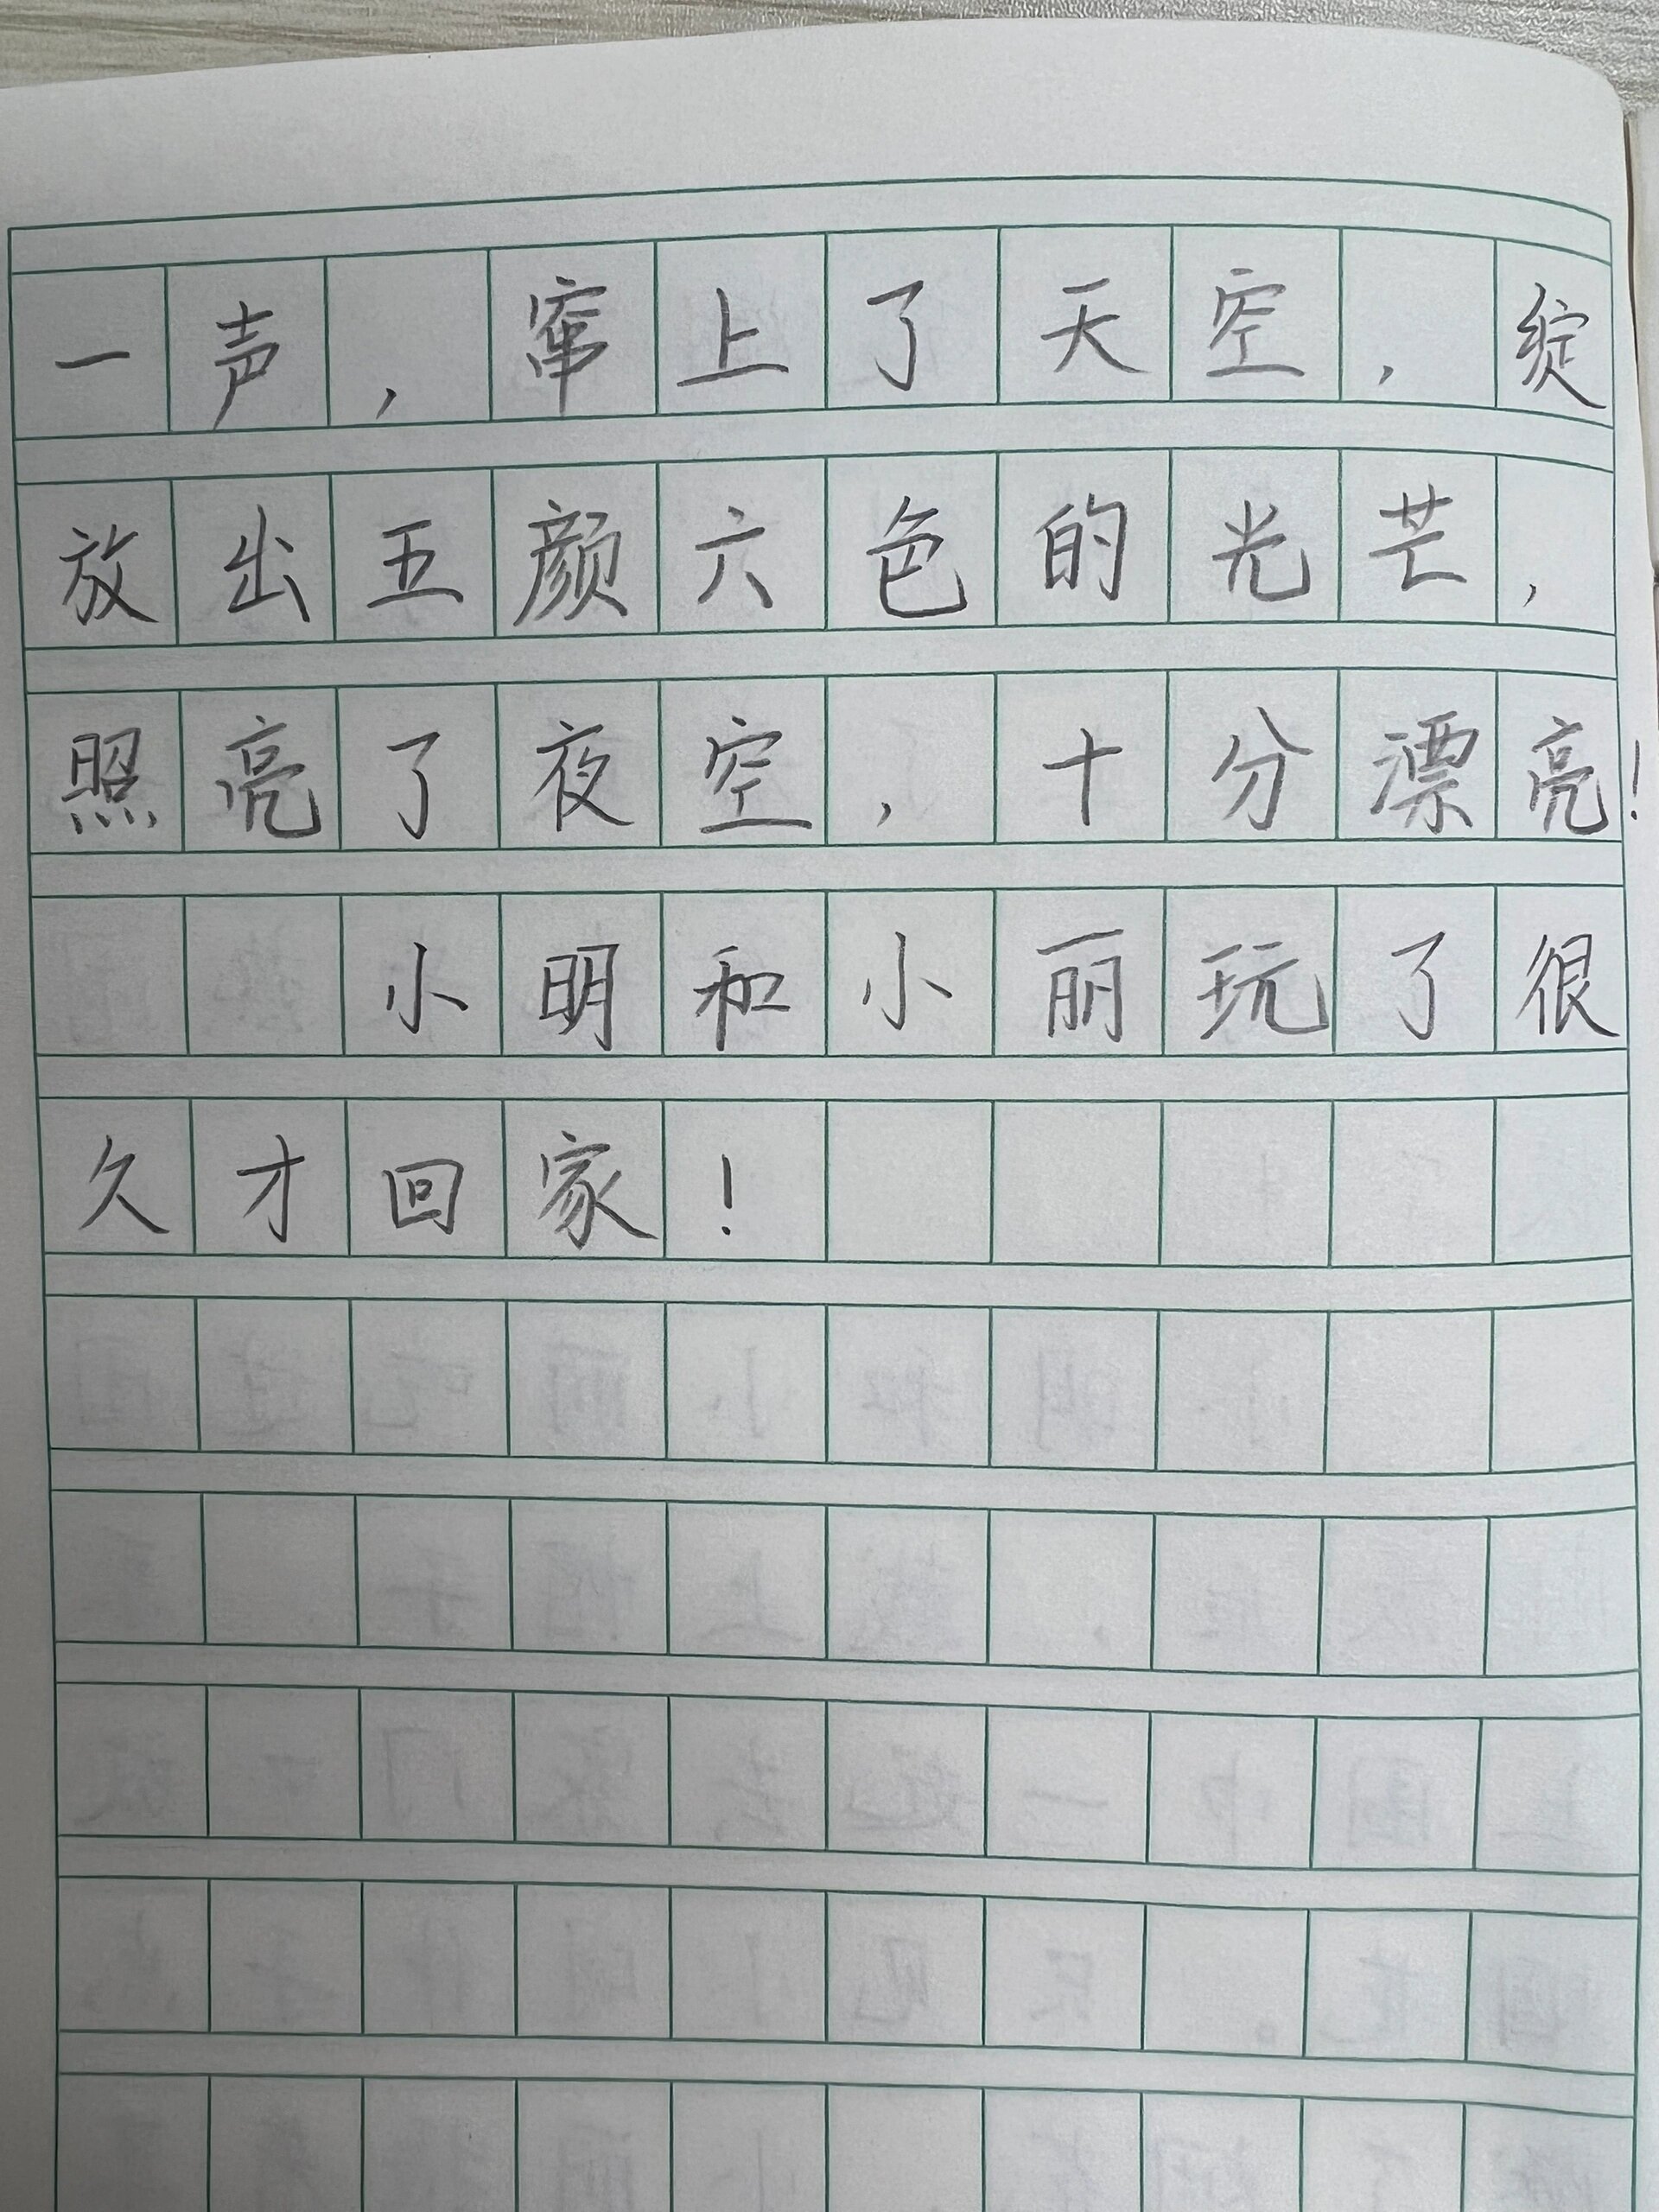 一声，窜上了天空，绽
放出五颜六色的光芒，
照亮了夜空，十分漂亮！
小明和小丽玩了很
久才回家！